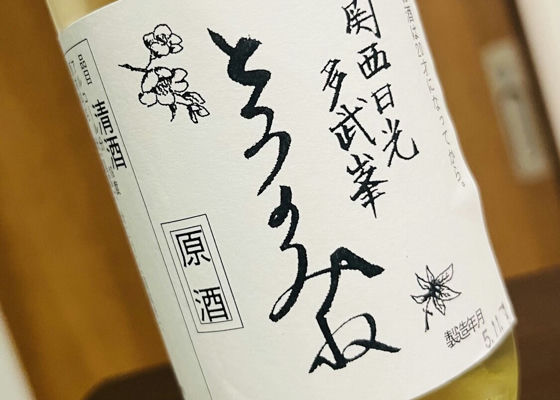 お酒は20才になってから。
関西日光
多武峯
とうのみね
清酒
原酒
製造年月
5.11.